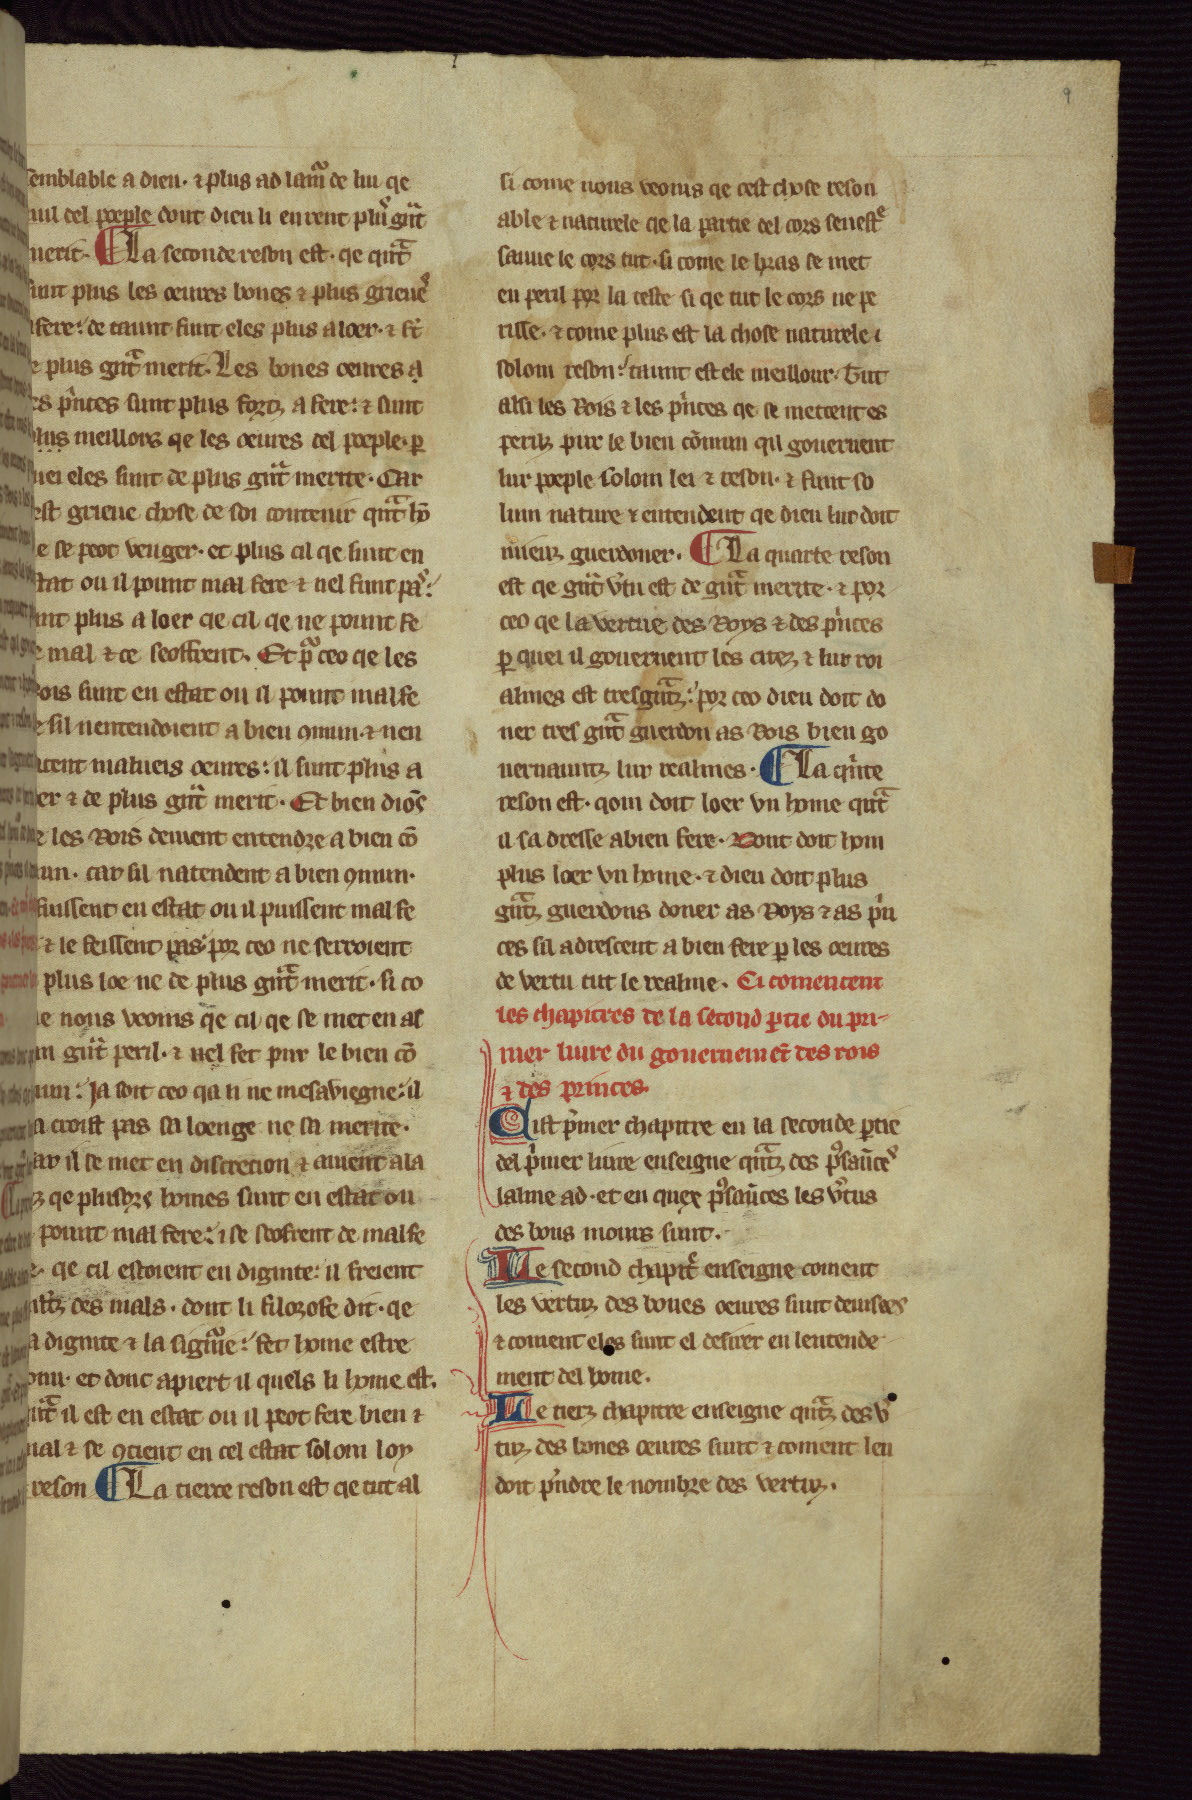 9
semblable a dien· ⁊ plus ad lam̃ de lui qe
del poeple dont dieu li en rent plus gñt
merit· La seconde reson est· qe qñt
sunt plus les oeures bones ⁊ plus grieue
fere: de taunt sunt eles plus a loer· ⁊ st̃
plus gñt merit· Les bones oeures a
p̃nces sunt plus fortz a fere: ⁊ sunt
meillors qe les oeures del poeple· ꝑ
eles sunt de plus gñt merite· Car
est grieue chose de soi contenir qñt hõ
se peot venger· et plus cil qe sunt en
estat ou il pount mal fere ⁊ nel funt pas:
plus a loer qe cil qe ne pount fe
mal ⁊ ce seoffrent· Et p̃ ceo qe les
Rois sunt en estat ou il pount mal fe
sil nentendoient a bien ꝯmun· ⁊ nen
malueis oeures: il sunt plus a
⁊ de plus gñt merit· Et bien dioñs
les Rois deiuent entendre a bien cõ
mun· car sil natendent a bien ꝯmun·
fuissent en estat ou il puissent mal fe
⁊ le feissent pas: por ceo ne serroient
plus loe ne de plus gñt merit· si co
nous veoms qe cil qe se met en as
gñt peril· ⁊ nel fet pur le bien cõ
mun: Ja soit ceo qa li ne mesaviegne: il
croist pas sa loenge ne sa merite·
Car il se met en discretion ⁊ auient a la
qe plusors homes sunt en estat ou
pount mal fere: i se seoffrent de mal fe
qe cil estoient en dignite: il freient
des mals· dont li filozofe dit· qe
la dignite ⁊ la sigñie: fet home estre
et donc apiert il quels li home est·
qñt il est en estat ou il peot fere bien ⁊
mal ⁊ se ꝯtient en cel estat solom loy
reson La tierce reson est qe tut al
si come nous veoms qe cest chose reson
able ⁊ naturele qe la partie del cors senestᵉ
sauue le cors tut· si come le bras se met
en peril por la teste si qe tut le cors ne pe
risse· ⁊ come plus est la chose naturele ⁊
solom reson: taunt est ele meillour· Tut
alsi les Rois ⁊ les p̃nces qe se mettent es
perilz pur le bien cõmun qil gouernent
lur poeple solom lei ⁊ reson· ⁊ funt so
lum nature ⁊ entendent qe dieu lur doit
mieuz guerdoner· La quarte reson
est qe gñt v̾tu est de gñt merite· ⁊ por
ceo qe la vertue des Roys ⁊ des p̃nces
ꝑ quei il gouernent les citez ⁊ lur roi
almes est tresgñtz: por ceo dieu doit do
ner tres gñt guerdon as Rois bien go
uernauntz lur realmes· La q̃nte
reson est· qom doit loer vn home qñt
il sa dresse a bien fere· Dont doit hom
plus loer vn home· ⁊ dieu doit plus
gñtz guerdons doner as Roys ⁊ as p̃n
ces sil adrescent a bien fere ꝑ les oeures
de vertu tut le realme· Ci comencent
les chapitres de la second ꝑtie du pri-
mer liure du gouernemẽt des rois
⁊ des princes·
Cist p̃mer chapitre en la seconde ꝑtie
del p̃mer liure enseigne qñtz des p̾saũces
lalme ad· et en quex p̾saũces les v̾tus
des bons moirs sunt·
Le second chapit̃ enseigne coment
les vertuz des bones oeures sunt deuisees
⁊ coment eles sunt el desirer en lentende
ment del home·
Le tierz chapitre enseigne qñtz des v̾
tuz des bones oeures sunt ⁊ coment len
doit p̃ndre le nombre des vertuz·